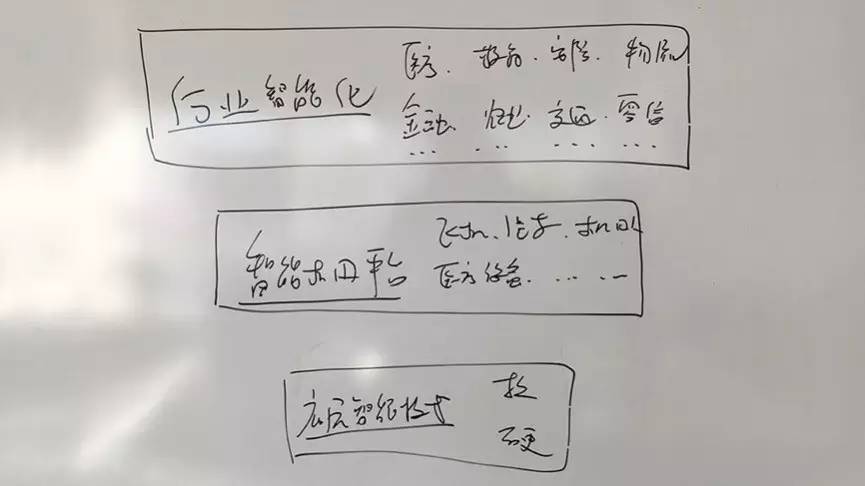 行业智能化
医疗. 教育. 安防. 物流
金融. 文通. 零售
... ... .... ....
智能应用平台
飞机、汽车.
医疗设备. ... ...
底层智能技术
软
硬